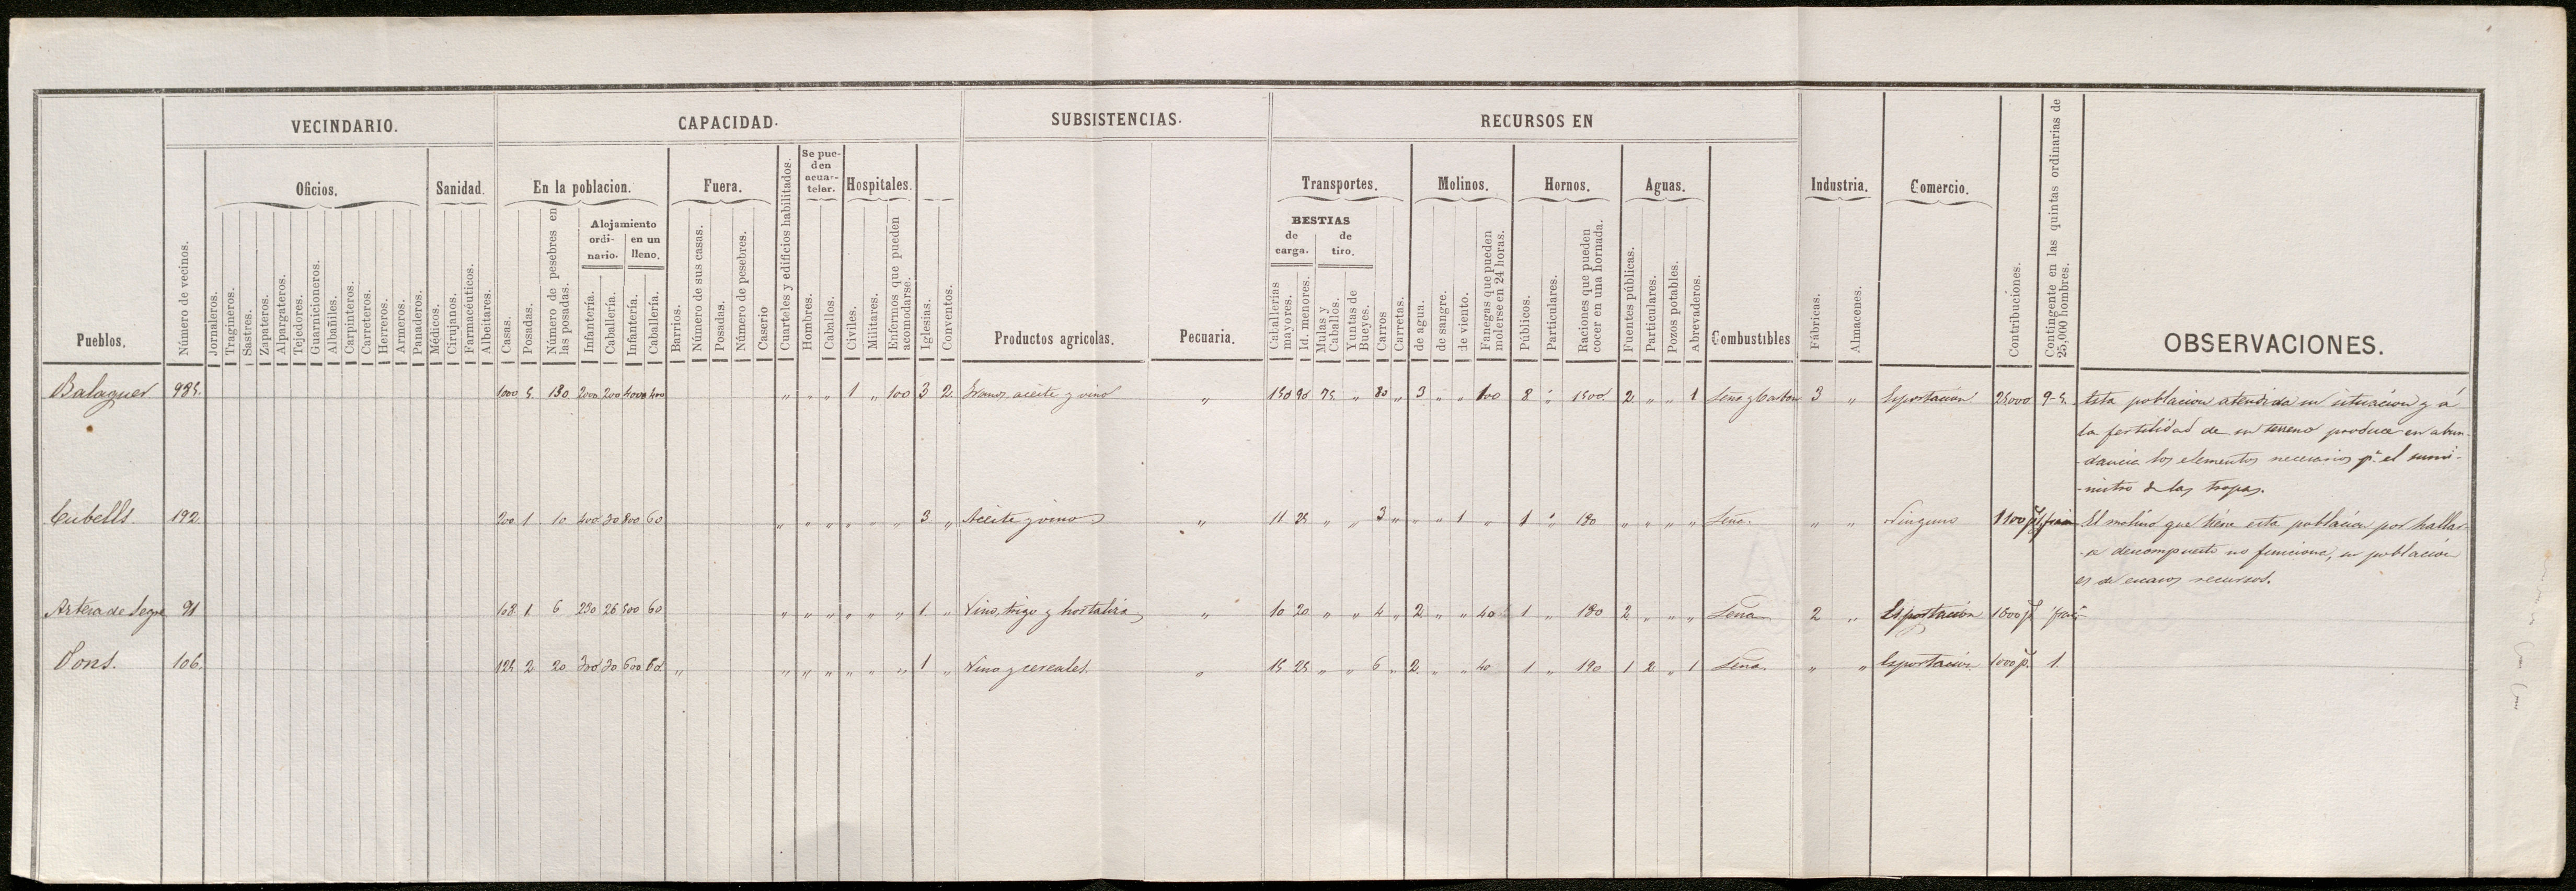 VECINDARIO.
CAPACIDAD.
SUBSISTENCIAS.
RECURSOS EN
Oficios.
Sanidad.
En la poblacion.
Fuera.
Se pue-
den
acuar-
telar.
Hospitales.
Transportes.
Molinos.
Hornos.
Aguas.
Industria.
Comercio.
Alojamiento
ordi-
nario.
en un
lleno.
BESTIAS
de
carga.
de
tiro.
Pueblos.
Número de vecinos.
Jornaleros.
Tragineros.
Sastres.
Zapateros.
Alpargateros.
Tejedores.
Guarnicioneros.
Albañiles.
Carpinteros.
Carreteros.
Herreros.
Armeros.
Panaderos.
Médicos.
Cirujanos.
Farmacéuticos.
Albeitares.
Casas.
Posadas.
Número de pesebres en
las posadas.
Infantería.
Caballería.
Infantería.
Caballería.
Barrios.
Número de sus casas.
Posadas.
Número de pesebres.
Caserio
Cuarteles y edificios habilitados.
Hombres.
Caballos.
Civiles.
Militares.
Enfermos que pueden
acomodarse.
Iglesias.
Conventos.
Productos agricolas.
Pecuaria.
Caballerias
mayores.
Id. menores.
Mulas y
Caballos.
Yuntas de
Bueyes.
Carros
Carretas.
de agua.
de sangre.
de viento.
Fanegas que pueden
molerse en 24 horas.
Públicos.
Particulares.
Raciones que pueden
cocer en una hornada.
Fuentes públicas.
Particulares.
Pozos potables.
Abrevaderos.
Combustibles
Fábricas.
Almacenes.
Contribuciones.
Contingente en las quintas ordinarias de
25,000 hombres.
OBSERVACIONES.
Balaguer 985. 1000 5. 130 2000 200 4000 400 " " " 1 " 100 3 2. Granos, aceite y vino " 150 90 75 " 80 " 3 " " 100 8 " 1500 2 " " 1 Leña y Carbon 3 " Esportacion 25000 9-5. Esta poblacion atendida su situacion y á
la fertilidad de su terreno produce en abun-
-dancia los elementos necesarios pª el sumi-
-nistro de las tropas.
Cubells. 192. 200 1 10 400 30 800 60 " " " " " " 3 " Aceite y vino " 11 25 " " 3 " " " 1 " 1 " 180 " " " " Leña. " " Ninguno 1100 El molino que tiene esta poblacion por hallar-
-se descompuesto no funciona, su poblacion
es de escasos recursos.
Artesa de Segre 91 108 1 6 250 26 500 60 " " " " " " 1 " Vino, trigo y hortaliza " 10 20 " " 4 " 2 " " 40 1 " 180 2 " " " Leña 2 " Esportación 1600
Pons. 106. 125 2 20 300 30 600 60 " " " " " " " 1 " Vino y cereales. " 15 25 " " 6 " 2 " " 40 1 " 190 1 2 " 1 Leña " " Esportación 1000 p. 1.